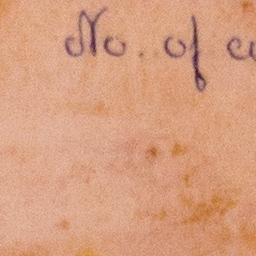 No. of